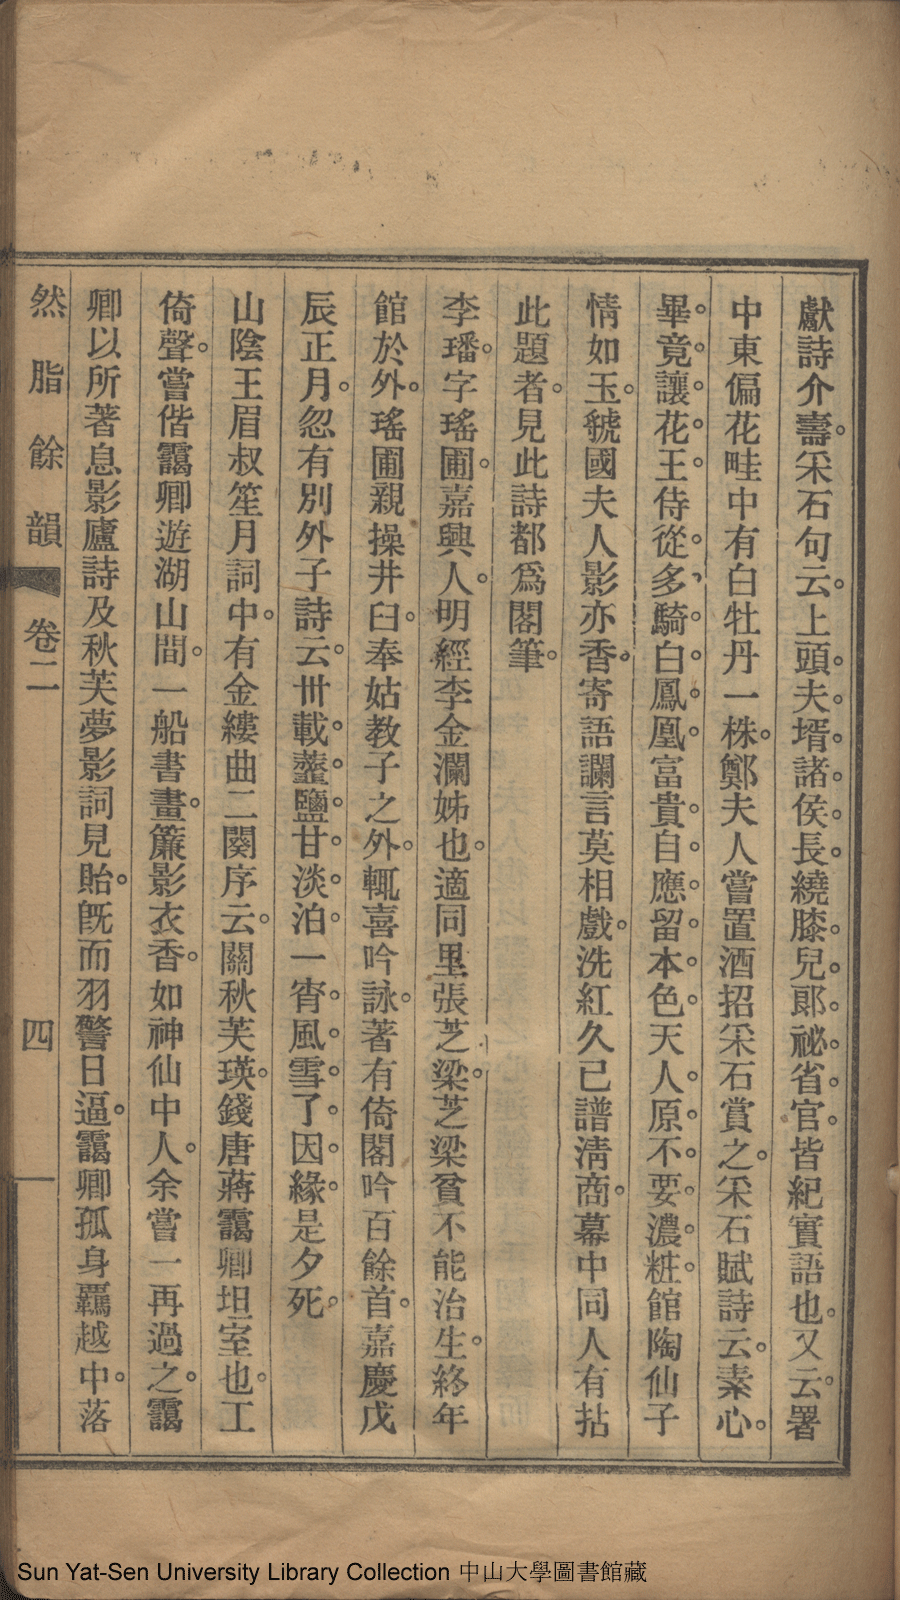 獻詩介壽。采石句云。上頭。夫。壻。諸。侯。長。繞膝。兒。郎。祕。省。官。皆紀實語也。又云。署
中東偏花畦中有白牡丹一株。鄭夫人嘗置酒招采石賞之。采石賦詩云。素心。
畢。竟。讓。花。王。侍從。多。騎。白。鳳。凰。富貴。自。應。留。本。色。天人。原。不。要。濃。粧。館陶仙子
情如玉。虢國夫人影亦香。寄語讕言莫相戲。洗紅久已譜淸商。幕中同人有拈
此題者。見此詩都爲閣筆。
李璠。字瑤圃。嘉興人。明經李金瀾姊也。適同里張芝梁。芝梁貧不能治生。終年
館於外。瑤圃親操井臼。奉姑教子之外。輒喜吟詠。著有倚閣吟百餘首。嘉慶戊
辰正月。忽有別外子詩云。卅載。虀。鹽。甘。淡。泊。一宵。風。雪。了。因。緣。是夕死。
山陰王眉叔笙月詞中。有金縷曲二闋序云。關秋芙瑛。錢唐蔣靄卿坦室也。工
倚聲。嘗偕靄卿遊湖山間。一船書畫。簾影衣香。如神仙中人。余嘗一再過之。靄
卿以所著息影廬詩及秋芙夢影詞見貽。旣而羽警日逼。靄卿孤身羈越中。落
然脂餘韻 卷二 四
Sun Yat-Sen University Library Collection 中山大學圖書館藏